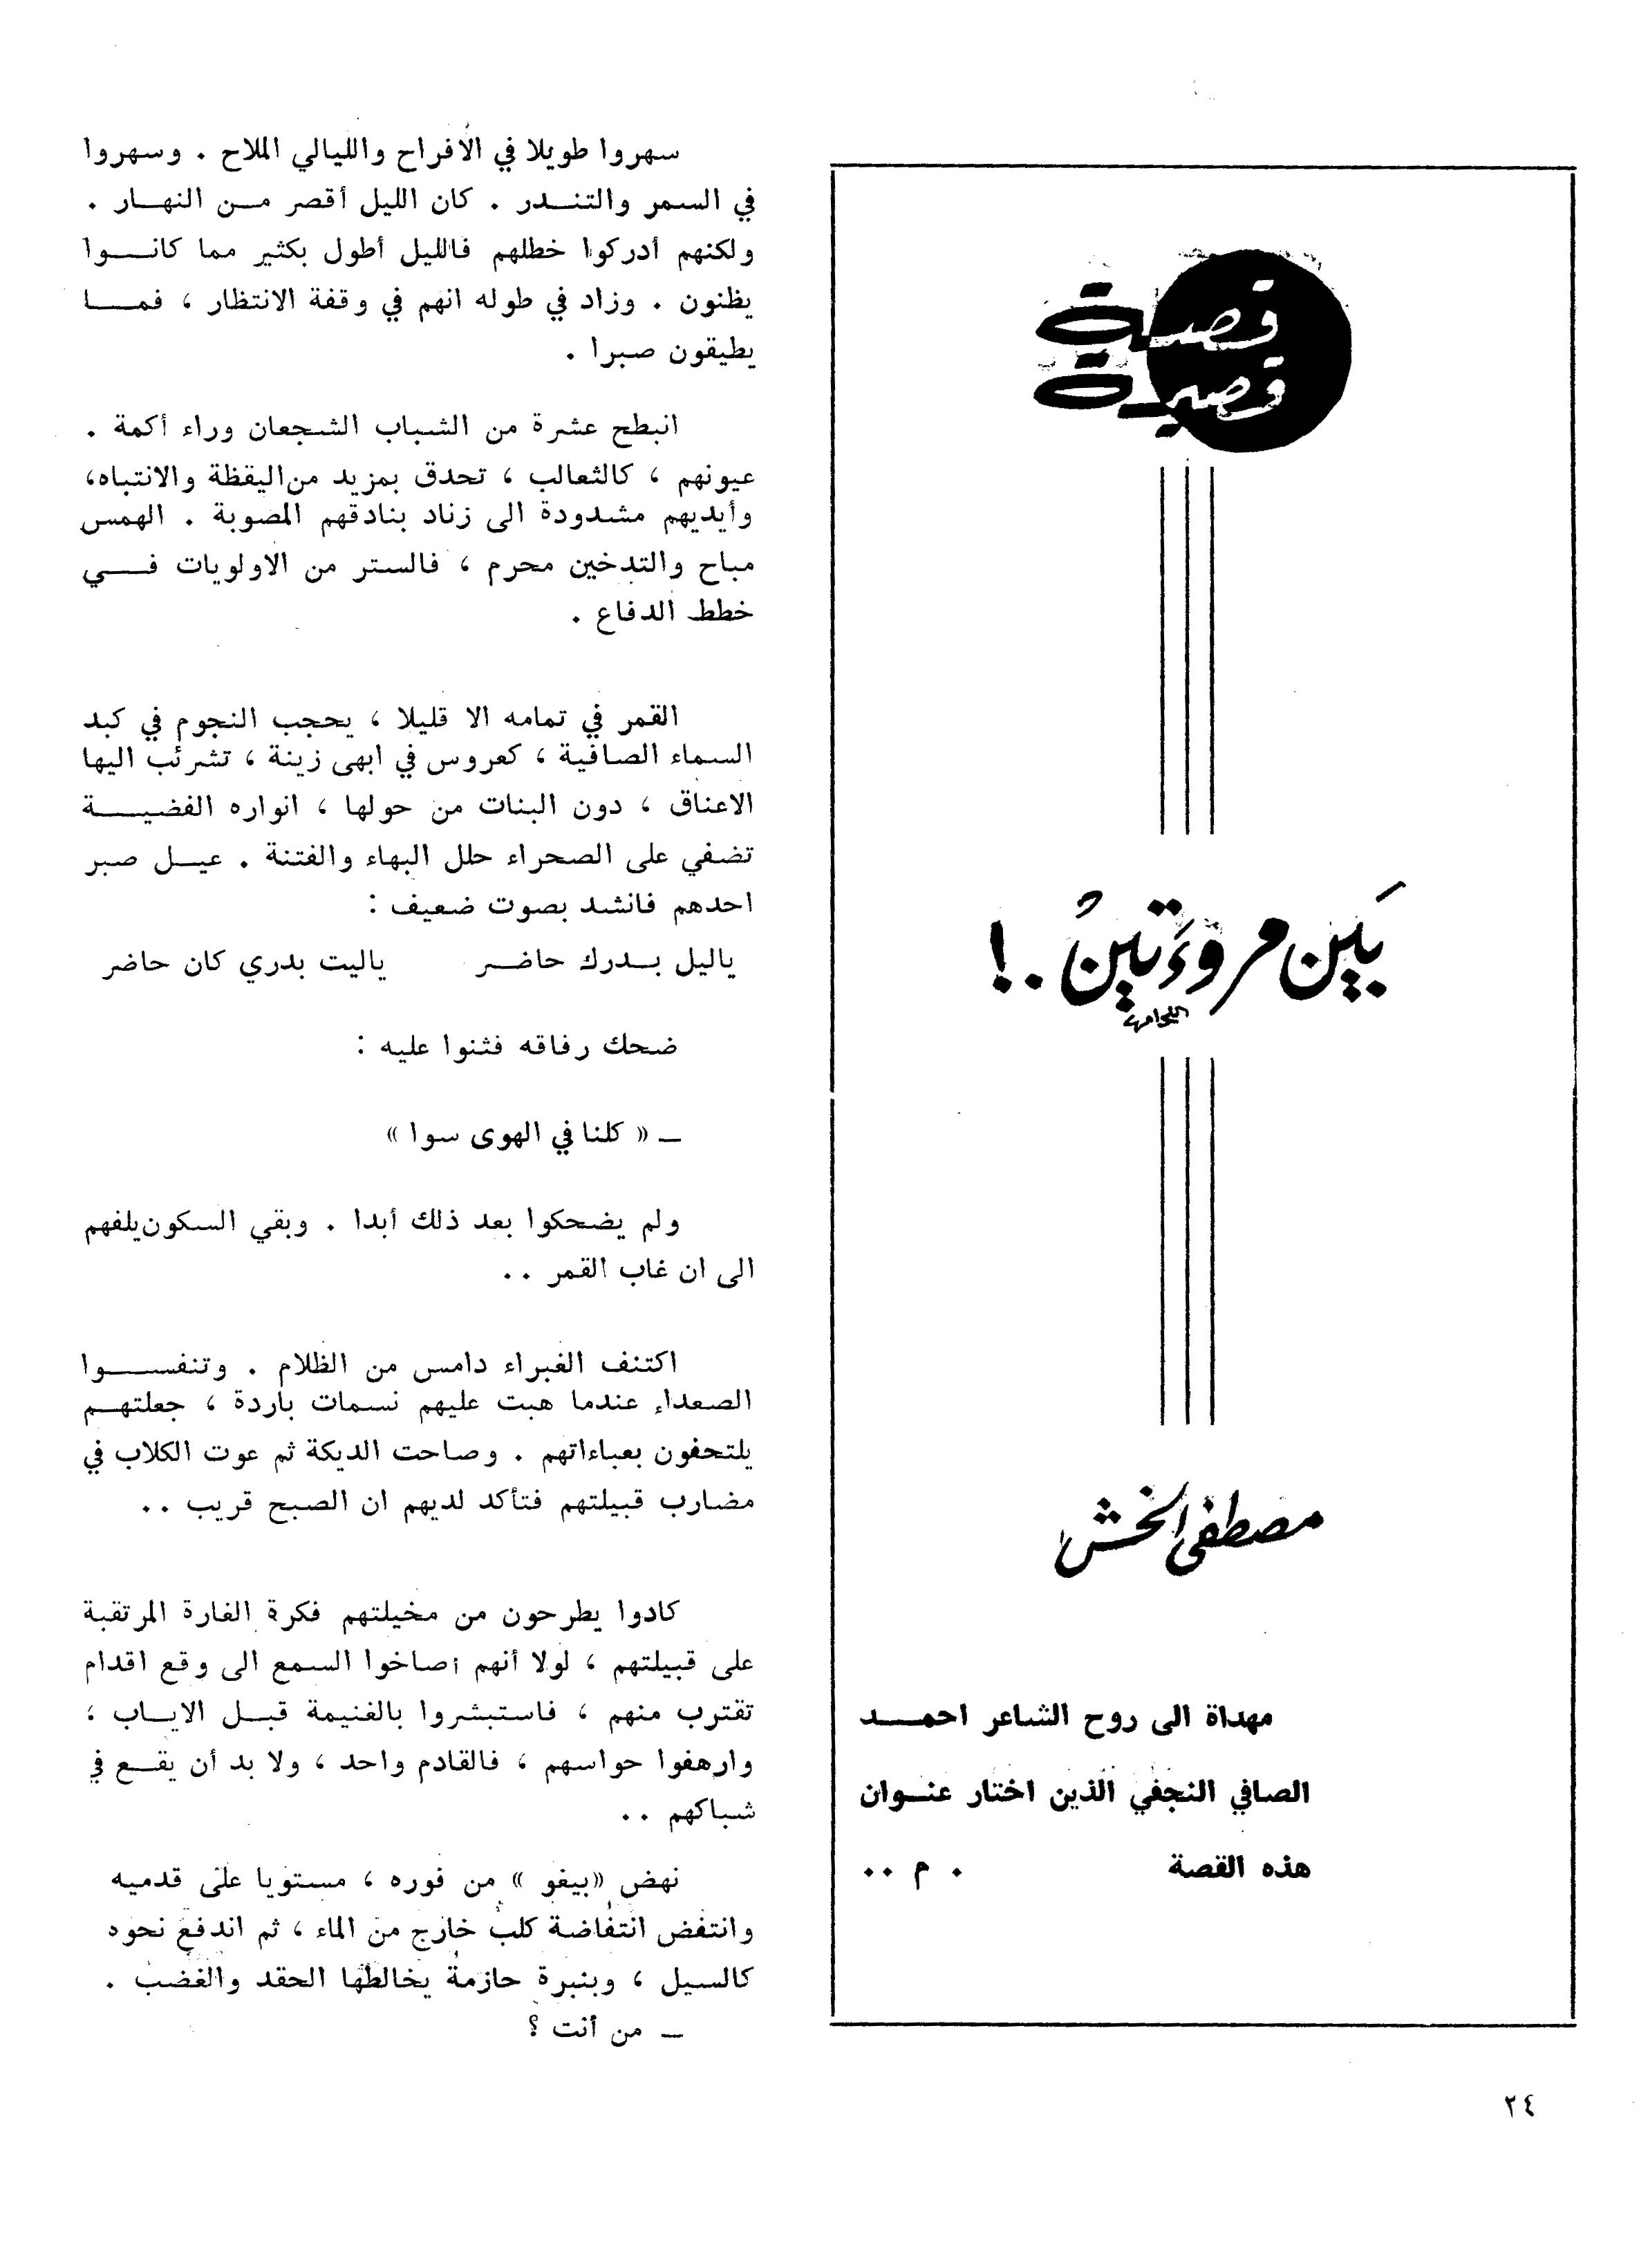 قصة
قصيرة
بَين مروءَتينُ . !
مصطفى الخش
مهداة الى روح الشاعر احمـــد
الصافي النجفي الذين اختار عنـوان
هذه القصة . م ..
سهروا طويلا في الافراح والليالي الملاح . وسهروا
في السمر والتنـدر . كان الليل أقصر مـن النهـار .
ولكنهم أدركوا خطلهم فالليل أطول بكثير مما كانـوا
يظنون . وزاد في طوله انهم في وقفة الانتظار ، فمـا
يطيقون صبرا .
انبطح عشرة من الشباب الشجعان وراء أكمة .
عيونهم ، كالثعالب ، تحدق بمزيد من اليقظة والانتباه،
وأيديهم مشدودة الى زناد بنادقهم المصوبة . الهمس
مباح والتدخين محرم ، فالستر من الاولويات فـي
خطط الدفاع .
القمر في تمامه الا قليلا ، يحجب النجوم في كبد
السماء الصافية ، كعروس في ابهى زينة ، تشرئب اليها
الاعناق ، دون البنات من حولها ، انواره الفضيـة
تضفي على الصحراء حلل البهاء والفتنة . عيـل صبر
احدهم فانشد بصوت ضعيف :
ياليل بـدرك حاضـر ياليت بدري كان حاضر
ضحك رفاقه فثنوا عليه :
ـ « كلنا في الهوى سوا »
ولم يضحكوا بعد ذلك أبدا . وبقي السكون يلفهم
الى ان غاب القمر ..
اكتنف الغبراء دامس من الظلام . وتنفسـوا
الصعداء عندما هبت عليهم نسمات باردة ، جعلتهـم
يلتحفون بعباءاتهم . وصاحت الديكة ثم عوت الكلاب في
مضارب قبيلتهم فتأكد لديهم ان الصبح قريب ..
كادوا يطرحون من مخيلتهم فكرة الغارة المرتقبة
على قبيلتهم ، لولا أنهم أصاخوا السمع الى وقع اقدام
تقترب منهم ، فاستبشروا بالغنيمة قبـل الايـاب ،
وارهفوا حواسهم ، فالقادم واحد ، ولا بد أن يقـع في
شباكهم ..
نهض «بيغو » من فوره ، مستويا على قدميه
وانتفض انتفاضة كلب خارج من الماء ، ثم اندفع نحوه
كالسيل ، وبنبرة حازمة يخالطها الحقد والغضب .
ـ من أنت ؟
٢٤